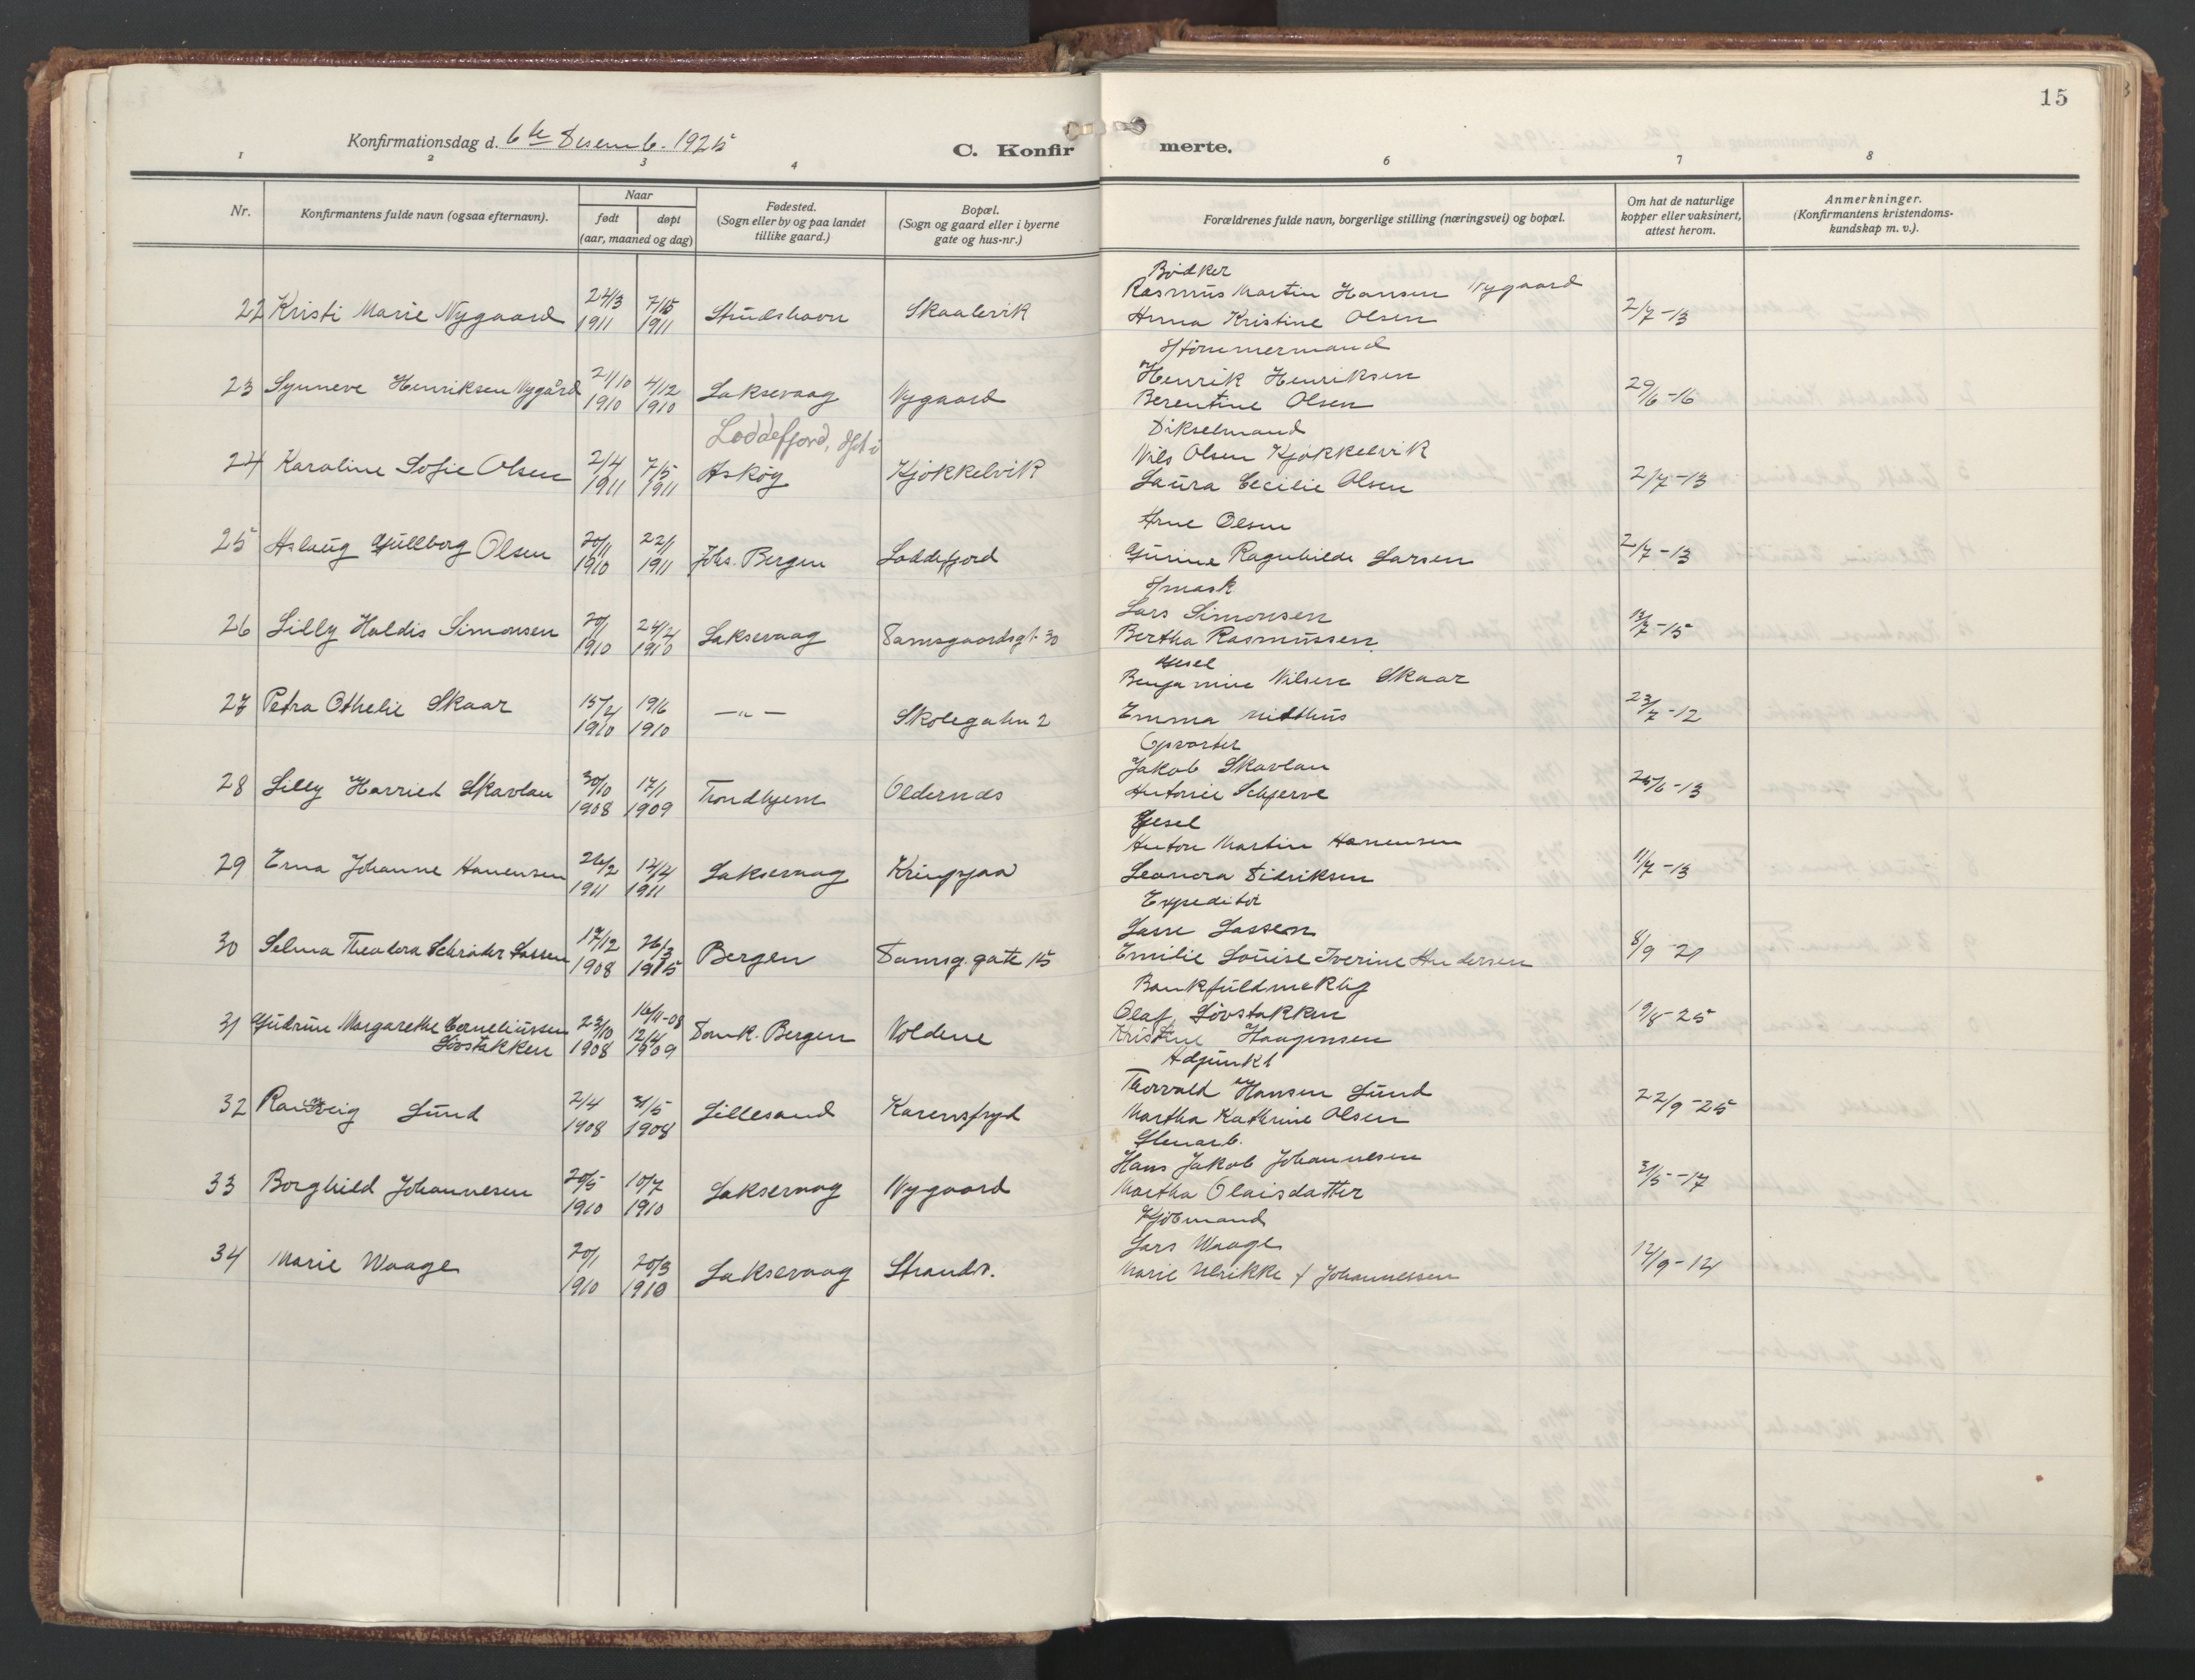 15
Konfirmationsdag d. 6te Desemb. 1925
C. Konfirmerte.
1 2 3 4 6 7 8
Nr.
Konfirmantens fulde navn (ogsaa efternavn).
Naar
født døpt
(aar, maaned og dag)
Fødested.
(Sogn eller by og paa landet
tillike gaard.)
Bopæl.
(Sogn og gaard eller i byerne
gate og hus-nr.)
Forældrenes fulde navn, borgerlige stilling (næringsvei) og bopæl.
Om hat de naturlige
kopper eller vaksinert,
attest herom.
Anmerkninger.
(Konfirmantens kristendoms-
kundskap m. v.).
Bødker
Rasmus Martin Hansen Nygaard
22 Kristi Marie Nygaard 24/3 1911 7/5 1911 Studshavn Skaalevik
Anna Kristine Olsen 2/7-13
Tømmermand
Henrik Henriksen
23 Synneve Henriksen Nygård 21/10 1910 4/12 1910 Laksevaag Nygaard
Berentine Olsen 29/6-16
Loddefjord, dpt i
Dikselmand
Nils Olsen Kjøkkelvik
24 Karoline Sofie Olsen 2/4 1911 7/5 1911 Askøy Kjøkkelvik
Laura Cecilie Olsen 2/7-13
Arne Olsen
25 Aslaug Gullborg Olsen 20/11 1910 22/1 1911 Johs. Bergen Loddefjord
Gurine Ragnhilde Larsen 2/7-13
Lars Simonsen
26 Lilly Haldis Simonsen 20/1 1910 24/4 1910 Laksevaag Damsgaardsgt 30
Bertha Rasmussen 13/7-15
Gjesel
Benjamine Nilsen Skaar
27 Petra Othelie Skaar 15/4 1910 19/6 1910 —"— Skolegaten 2
Emma Midthus 23/7-12
Opvarter
Jakob Skavlan
28 Lilly Harried Skavlan 30/10 1908 17/1 1909 Trondhjem Oldernes
Antonie Schjerve 25/6-13
Gjesel
Anton Martin Hanensen
29 Erna Johanne Hanensen 26/2 1911 17/4 1911 Laksevaag Kringsjaa
Leonora Didriksen 11/7-13
Expeditør
Lasse Lassen
30 Selma Theodora Schrøder Lassen 17/12 1908 26/3 1915 Bergen Damsg. gate 15
Emilie Louise Iverine Andersen 8/9-21
Bankfuldmektig
Olaf Løvstakken
31 Gudrun Margarethe Corneliussen Løvstakken 23/10 1908 16/11-08 12/4 1909 Domk. Bergen Noldene
Kristine Haagensen 19/8-25
Adjunkt
Thorvald Hansen Lund
32 Randveig Lund 2/4 1908 31/5 1908 Lillesand Karensfryd
Martha Kathrine Olsen 22/9-25
Stenarb.
Hans Jakob Johannesen
33 Borghild Johannesen 20/5 1910 10/7 1910 Laksevaag Nygaard
Martha Olaisdatter 3/5-17
Kjøbmand
Lars Waage
34 Marie Waage 20/1 1910 20/3 1910 Laksevaag Strandv.
Marie Ulrikke f Johannessen 12/9-14